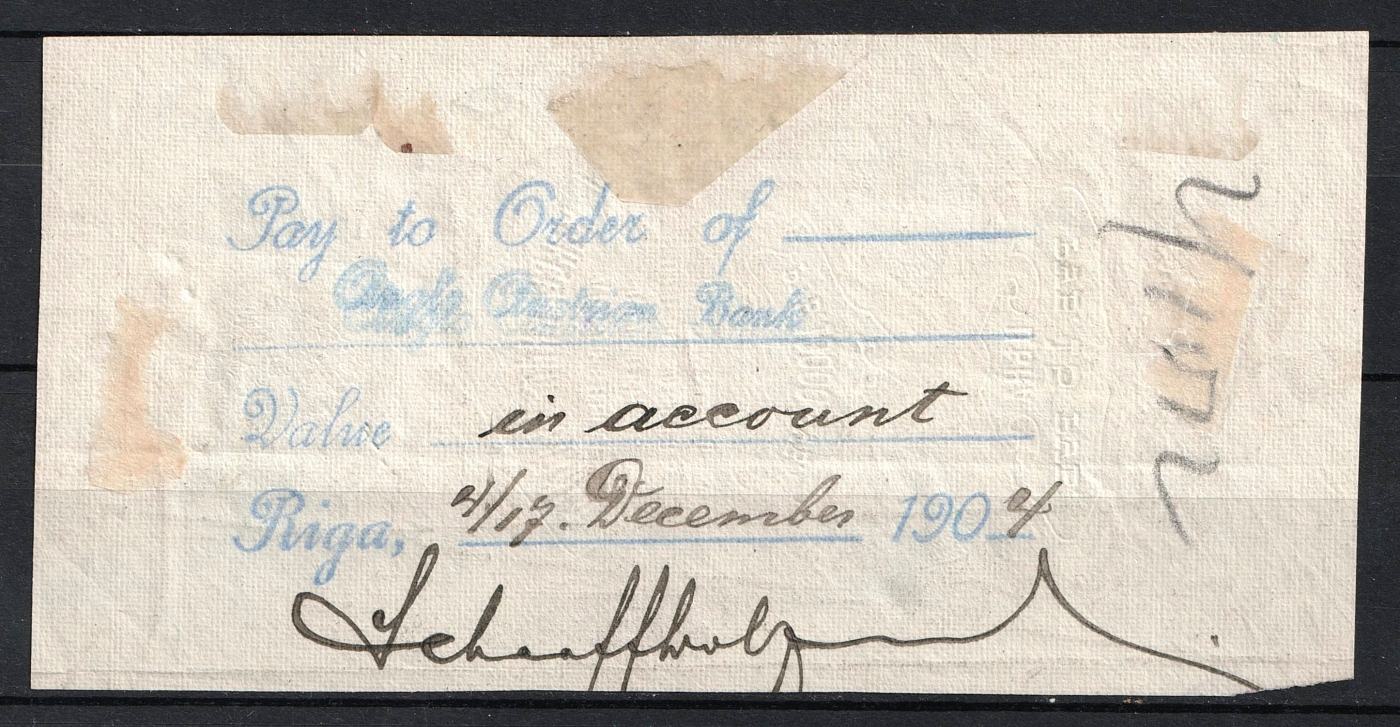 Pay to Order of
Anglo Austrian Bank
Value in account
Riga, 4/17. December 1904